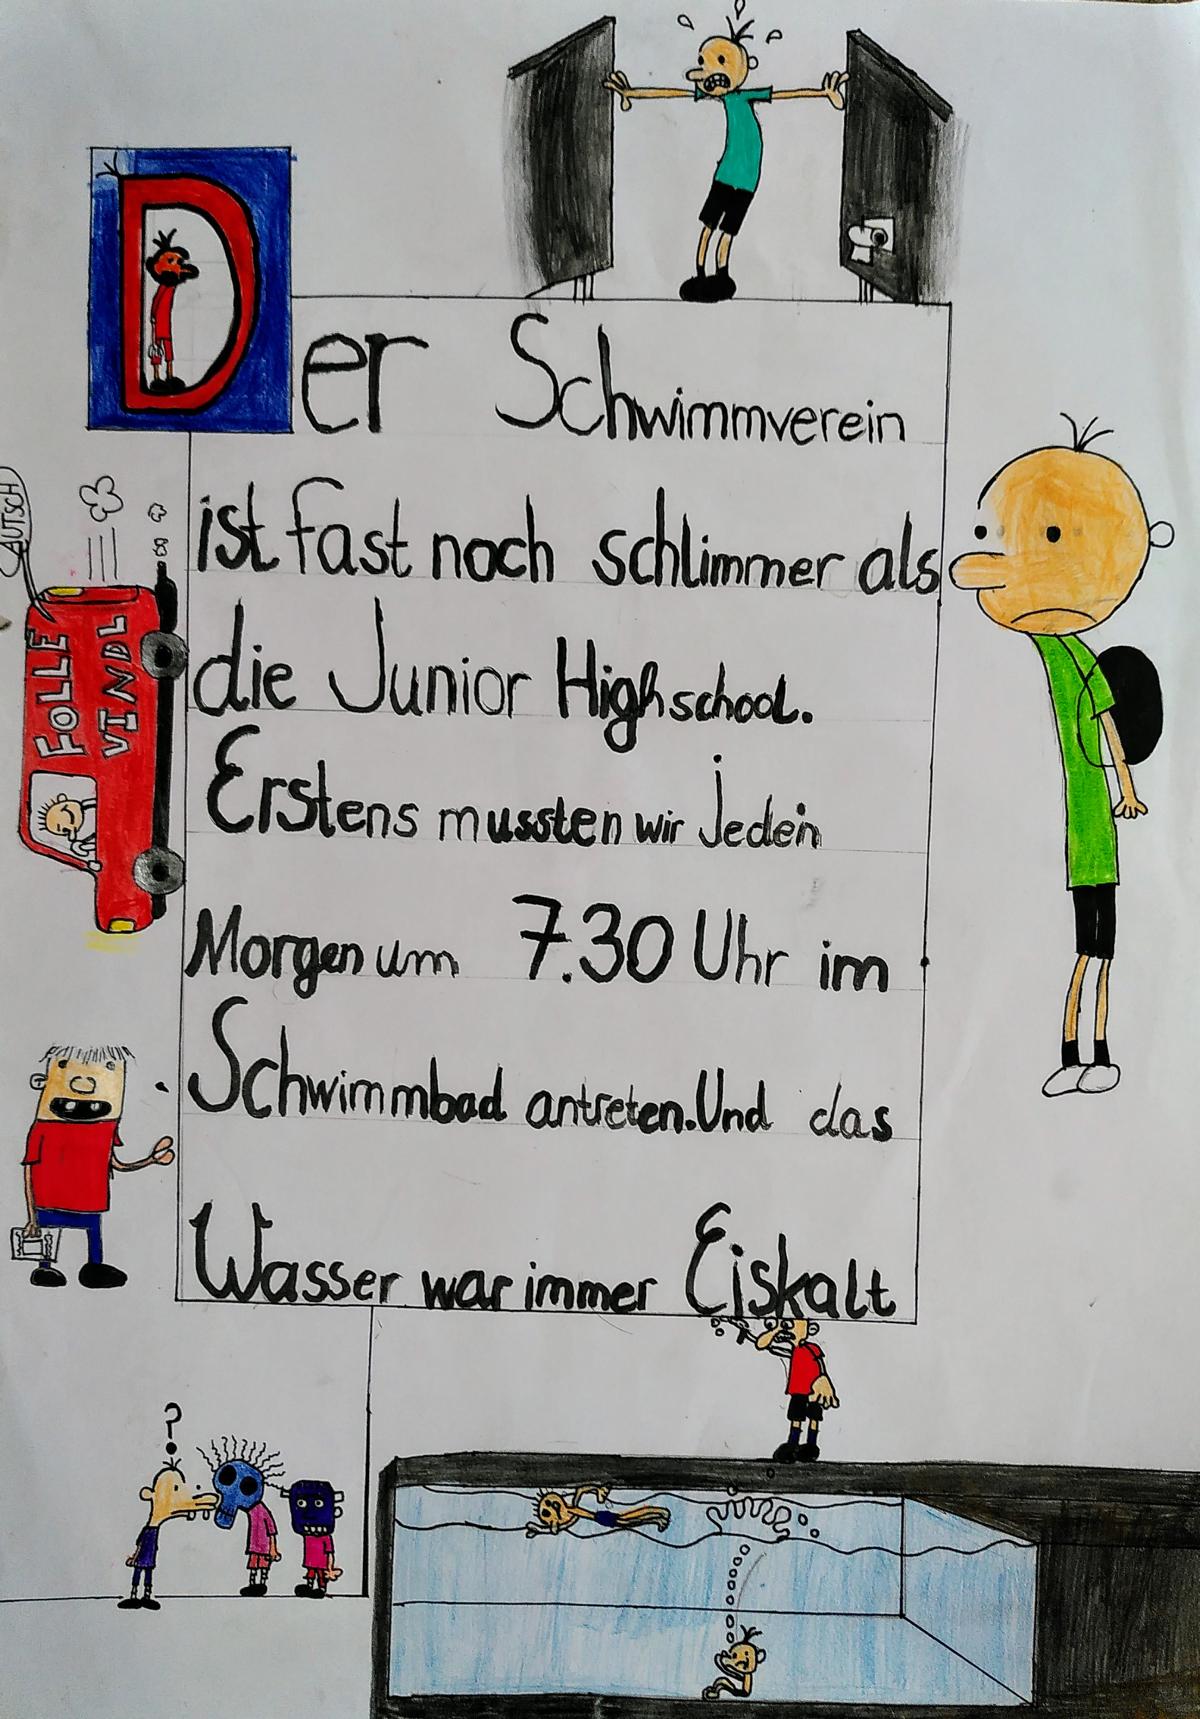 Der Schwimmverein
ist fast noch schlimmer als
die Junior Highschool.
Erstens mussten wir jeden
Morgen um 7.30 Uhr im
Schwimmbad antreten. Und das
Wasser war immer Eiskalt
AUTSCH
FOLLE
VINDL
?